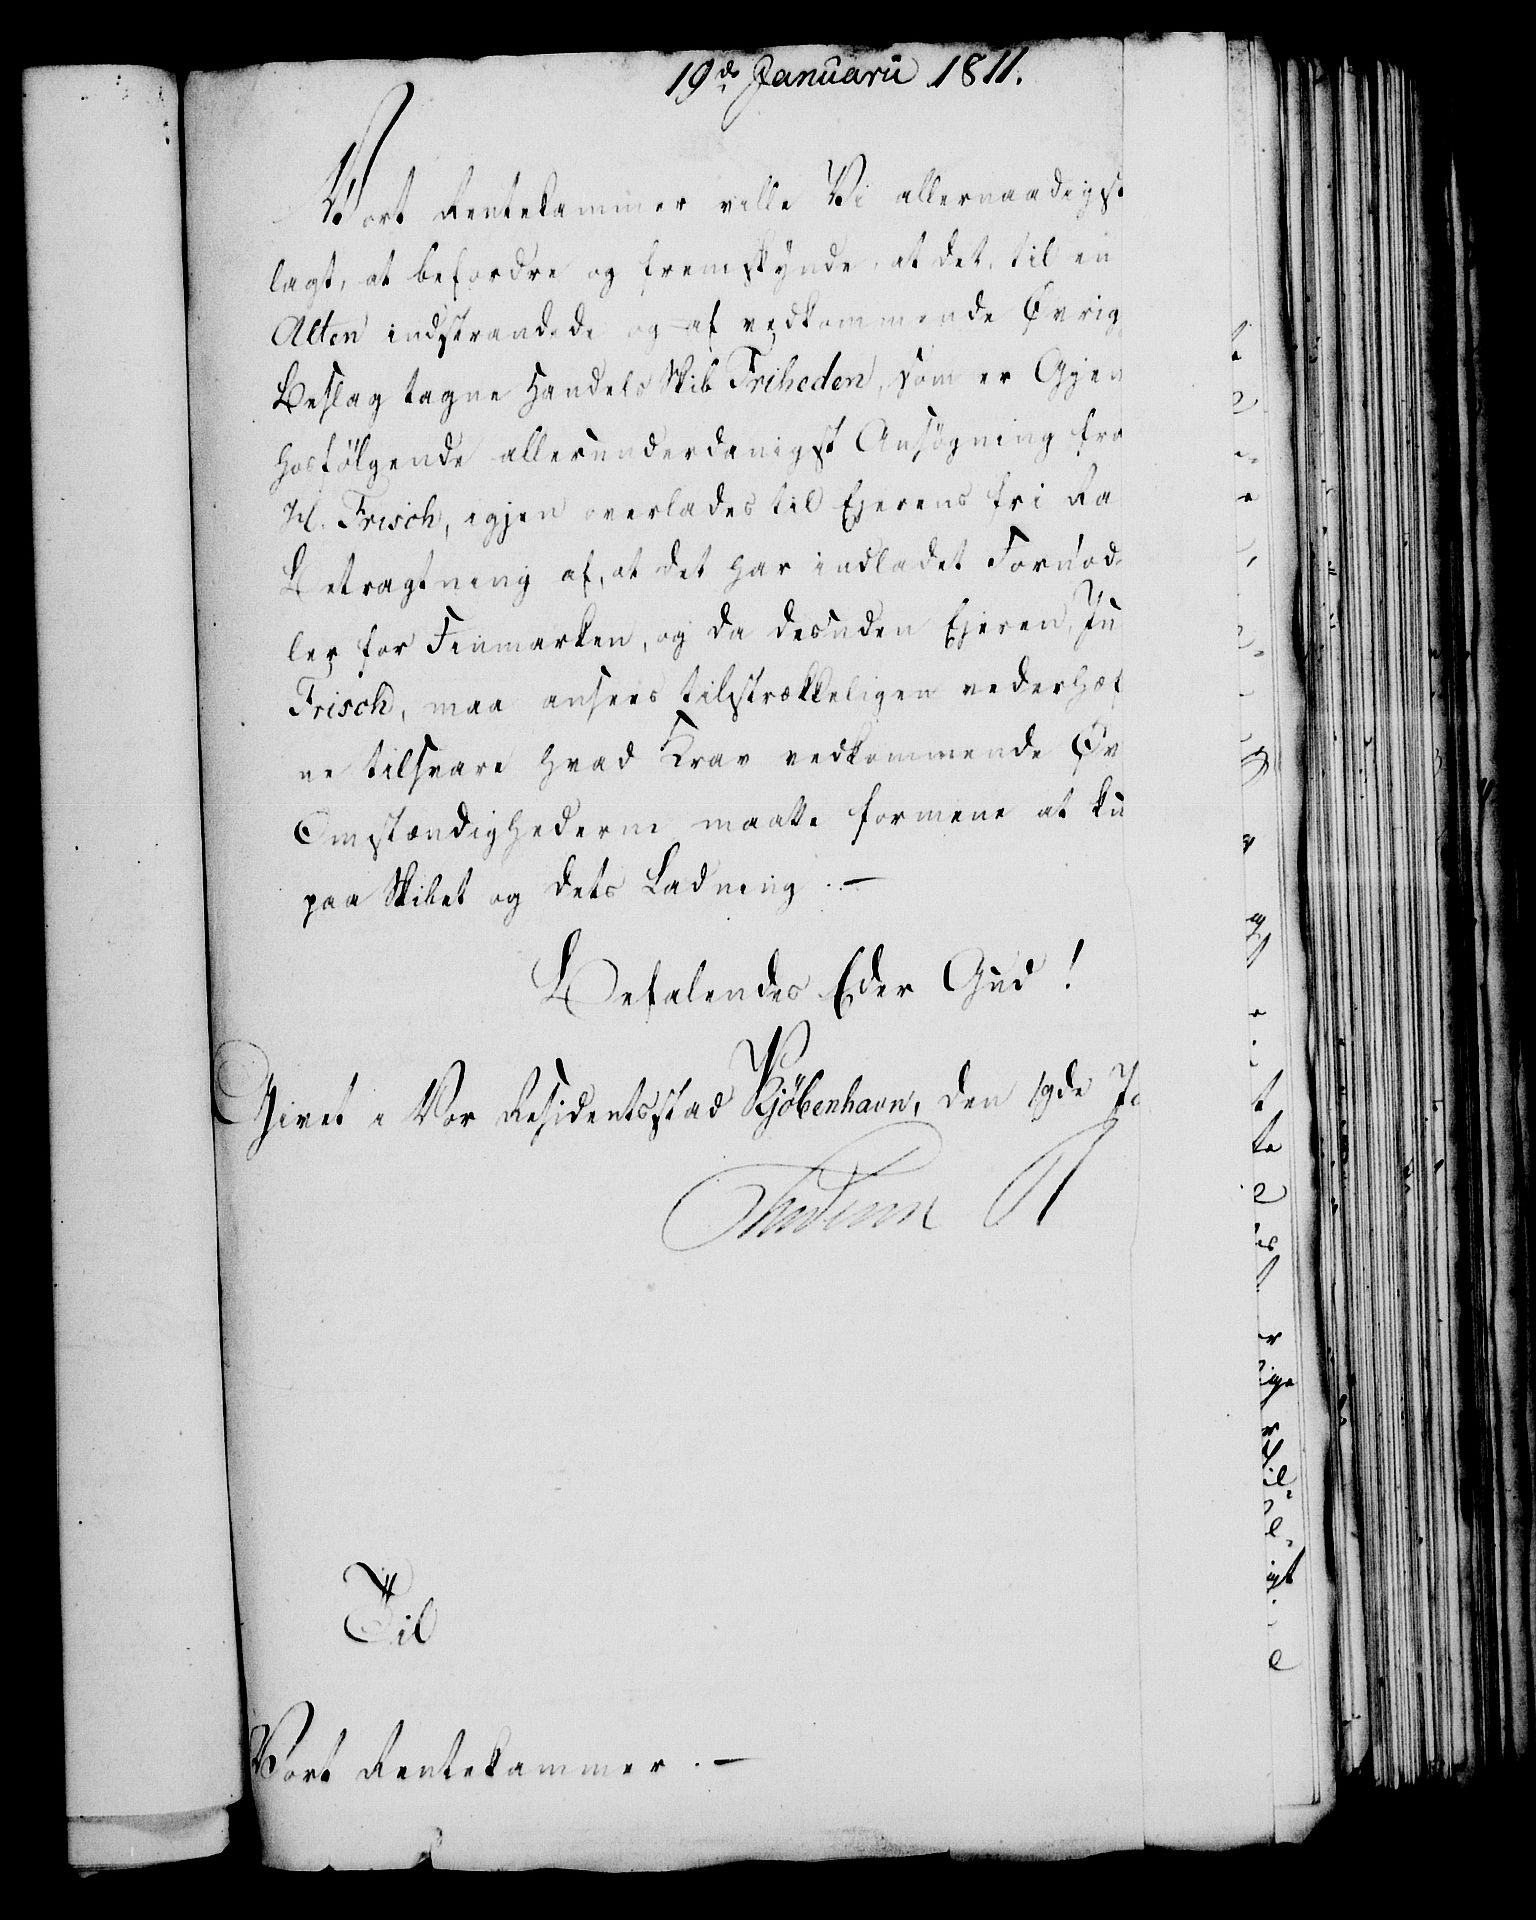 19de Januarii 1811.
Vort Rentekammer ville Vi allernaadigst
lagt, at befordre og fremskynde, at det, til en
Alten indstrandede og af vedkommende Øvrig
Beslag tagne Handels Skib Friheden, som er Gjen
hosfølgende allerunderdanigst Ansøgning fra
H. Frisch, igjen overlades til Ejerens fri Ra
Betragtning af, at det har indladet Fornød-
ler for Finmarken, og da desuden Ejeren, Ju
Frisch, maa ansees tilstrækkeligen vederhæf
ne tilsvare hvad Krav vedkommende Øv
Omstændighederne maatte formene at ku
paa Skibet og dets Ladning. —
Befalendes Eder Gud!
Givet i Vor Residentsstad Kjöbenhavn, den 19de Ja
Frederik R
Til
Vort Rentekammer. —